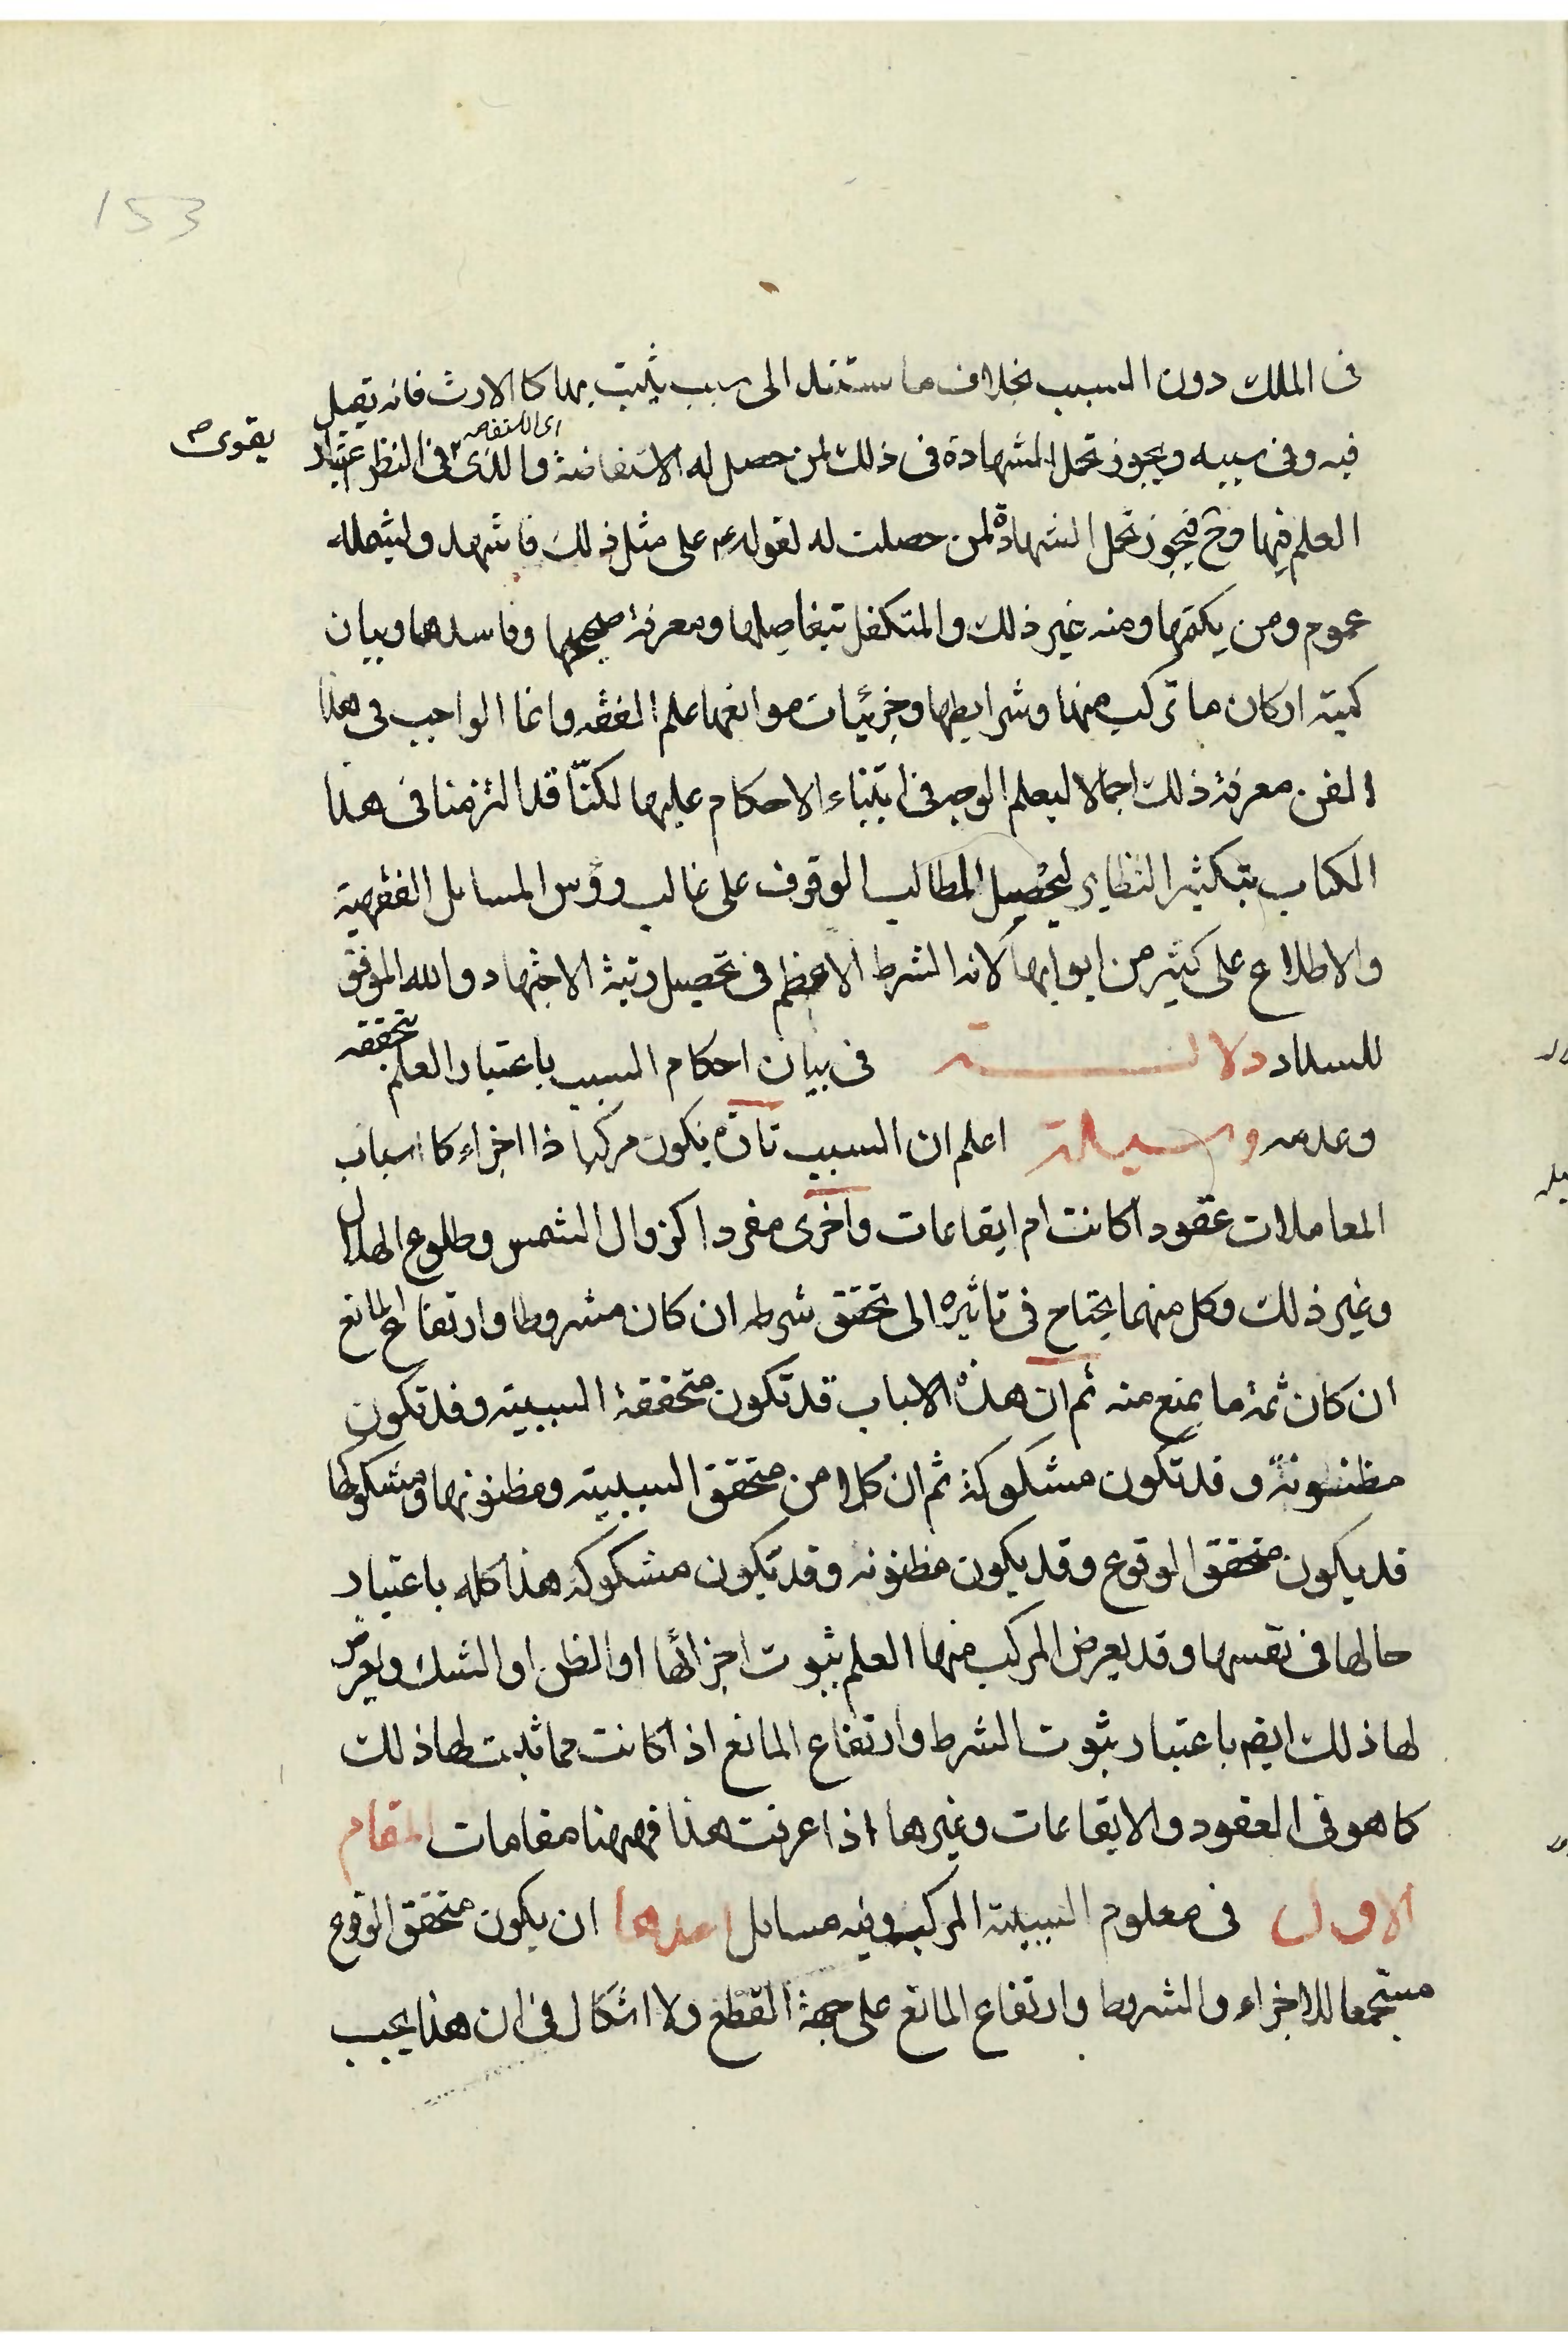 153
فى الملك دون السبب بخلاف ما يستند الى سبب يثبت بها كالارث فانه تقبل
اى الاستفاضه
فيه وفى سببه ويجوز تحمل الشهادة فى ذلك لمن حصل له الاستفاضة والذى فى النظر اعتبار
يقوى صح
العلم فيها وح فيجوز تحمل الشهادة لمن حصلت له لقوله ع على مثل ذلك فاشهد ولشمله
عموم ومن يكتمها ومنه غير ذلك والمتكفل بتفاصيلها ومعرفة صحيحها وفاسدها وبيان
كمية اركان ما تركب منها وشرايطها وجزئيات موانعها علم الفقه وانما الواجب فى هذا
الفن معرفة ذلك اجمالا ليعلم الوجه فى ابتناء الاحكام عليها لكنّا قد التزمنا فى هذا
الكتاب بتكثير النظاير ليحصل المطالب الوقوف على غالب رؤس المسائل الفقهية
والاطلاع على كثير من ابوابها لانه الشرط الاعظم فى تحصيل رتبة الاجتهاد والله الموفق
للسداد دلالـــة فى بيان احكام السبب باعتبار العلم بتحققه
وعدمه وسيلة اعلم ان السبب تارة يكون مركبا ذا اجزاء كاسباب
المعاملات عقودا كانت ام ايقاعات واخرى مفردا كزوال الشمس وطلوع الهلال
وغير ذلك وكل منهما يحتاج فى تاثيره الى تحقق شرطه ان كان مشروطا وارتفاع المانع
ان كان ثمة ما يمنع منه ثم ان هذه الاسباب قد تكون متحققة السببية وقد تكون
مظنونة وقد تكون مشكوكة ثم ان كلا من متحقق السببية ومظنونها ومشكوكها
قد يكون متحقق الوقوع وقد يكون مظنونه وقد تكون مشكوكه هذا كله باعتبار
حالها فى نفسها وقد يعرض المركب منها العلم بثبوت اجزائها او الظن او الشك ويعرض
لها ذلك ايضا باعتبار ثبوت الشرط وارتفاع المانع اذا كانت مما ثبت لها ذلك
كما هو فى العقود والايقاعات وغيرها اذا عرفت هذا فههنا مقامات المقام
الاول فى معلوم السببية المركب وفيه مسائل احدها ان يكون متحقق الوقوع
مستجمعا للاجزاء والشروط وارتفاع المانع على جهة القطع ولا اشكال فى ان هذا يجب